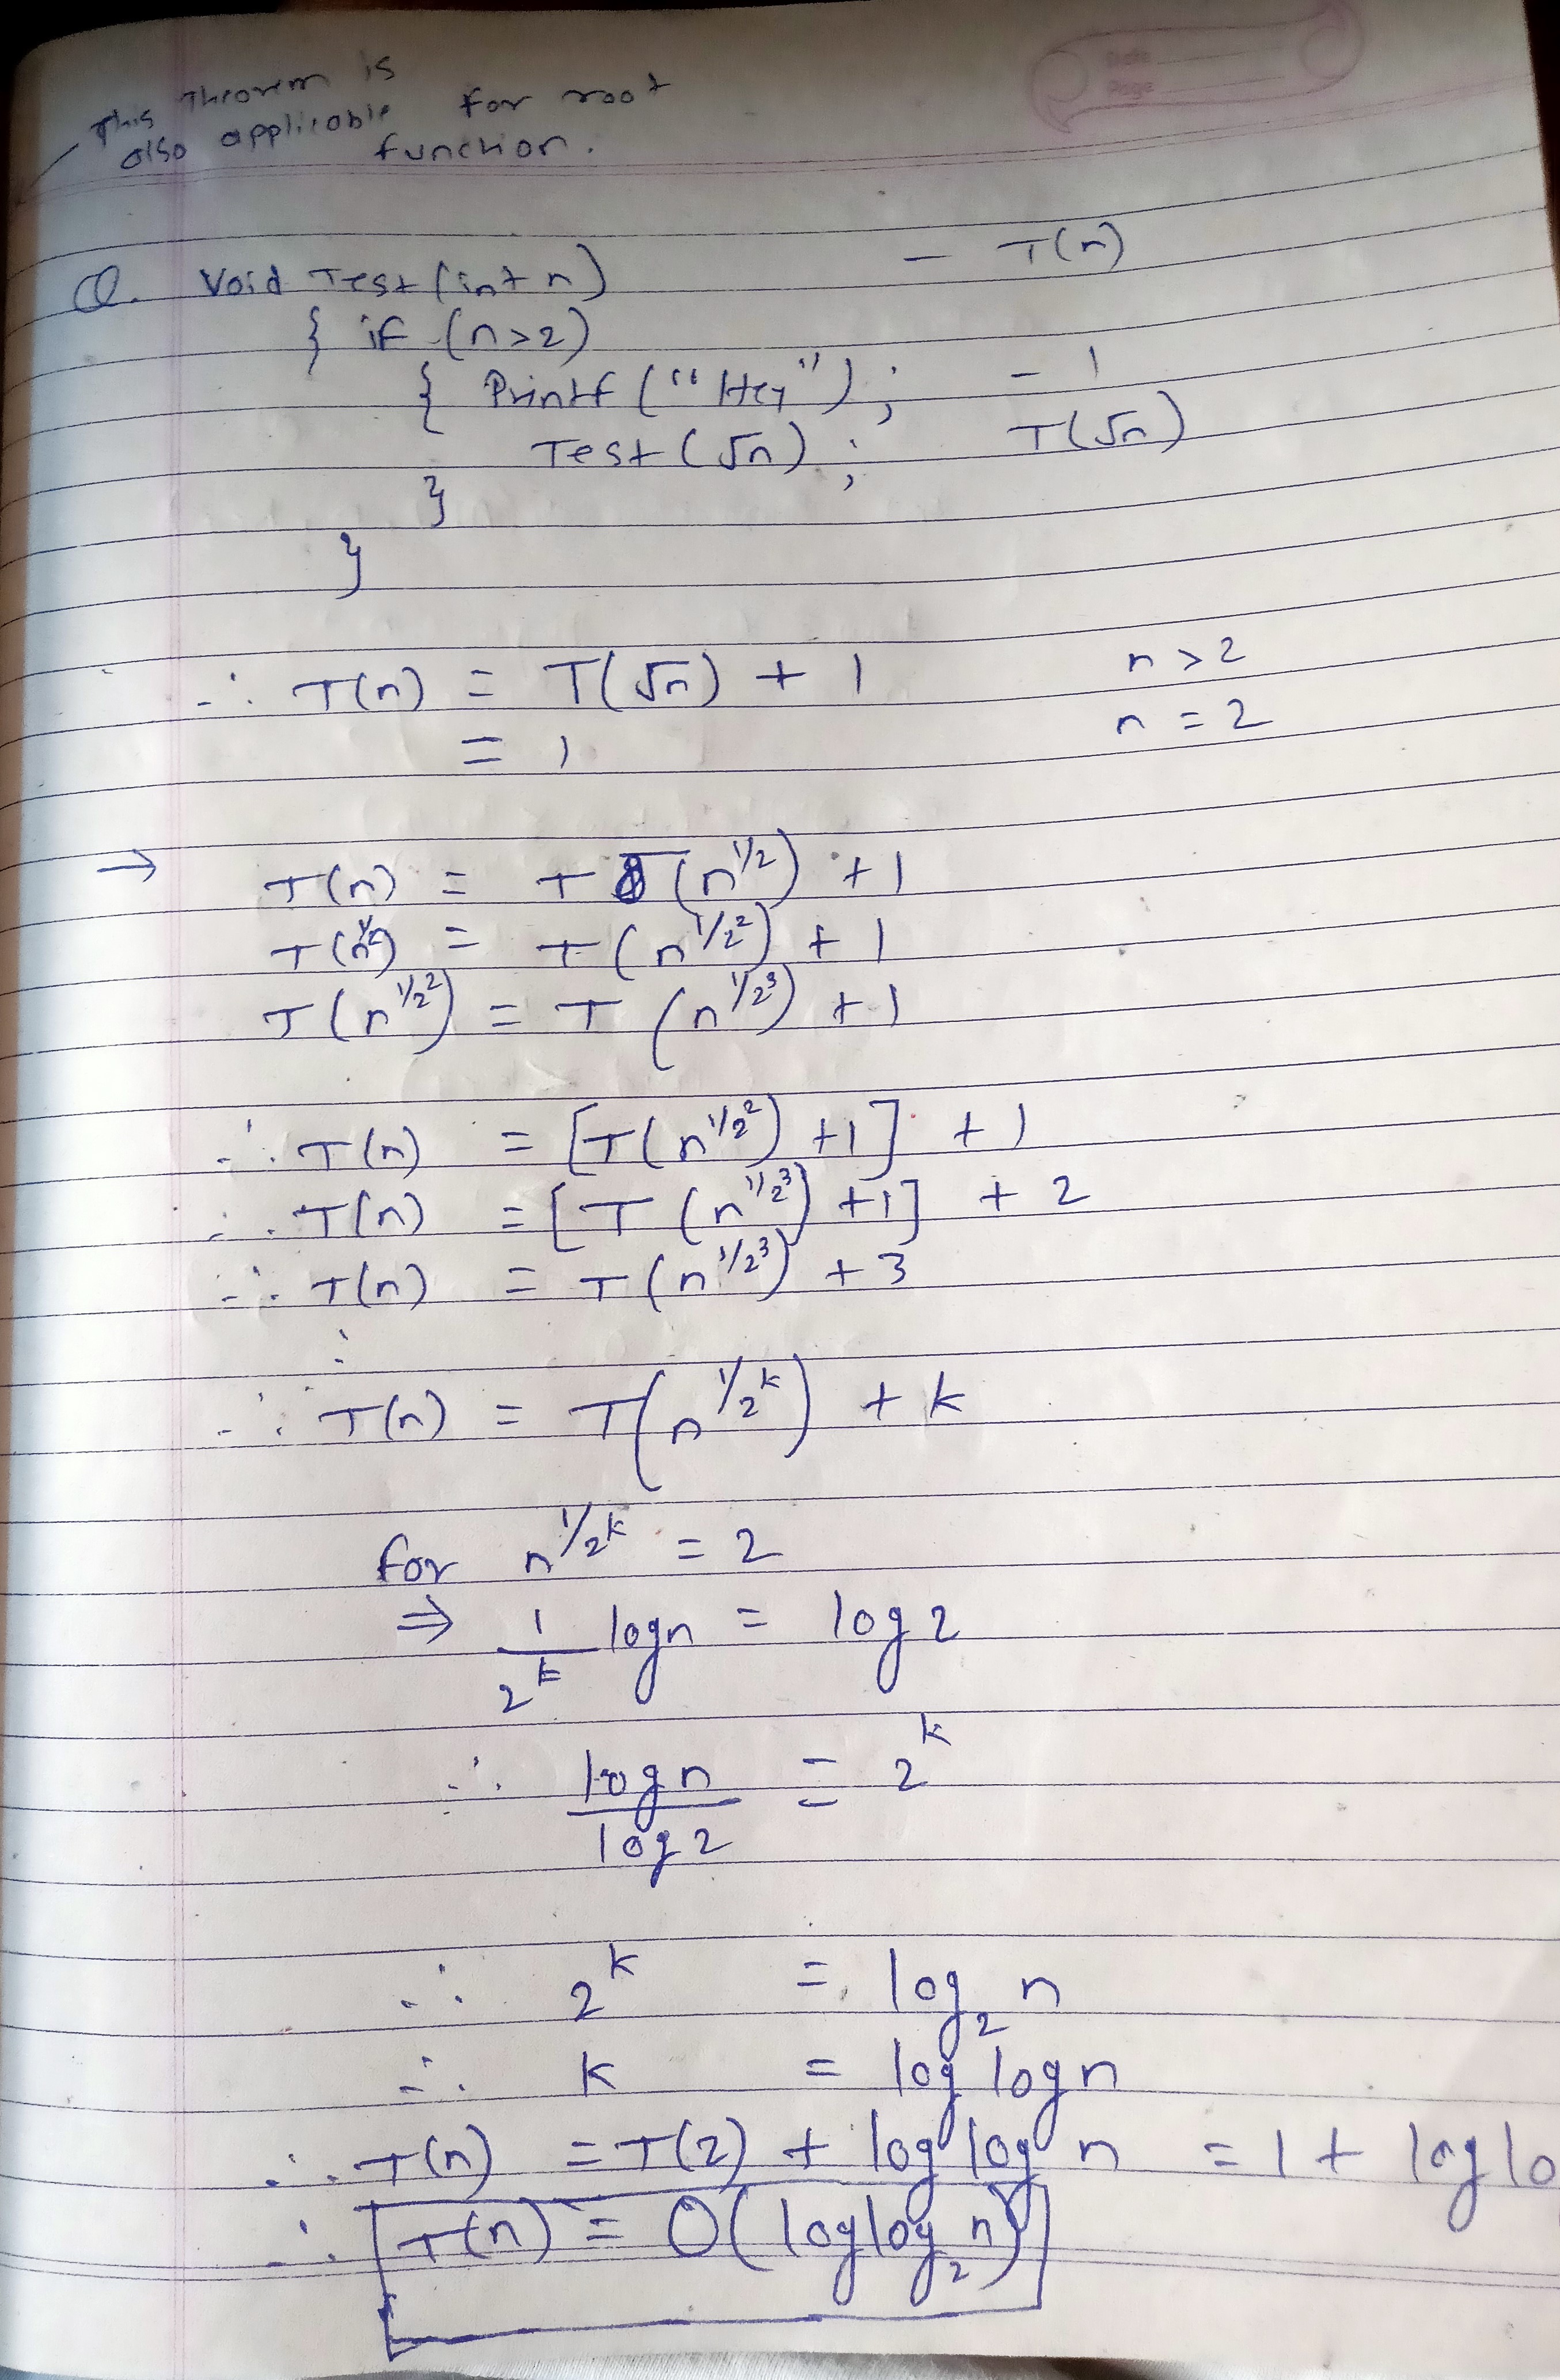 This Theorem is
also applicable for root
function.
Date
Page
Q. Void Test (int n) — T(n)
{ if (n>2)
{ Printf ("Hey"); — 1
Test (√n); T(√n)
}
}
∴ T(n) = T(√n) + 1 n > 2
= 1 n = 2
→ T(n) = T (n^1/2) + 1
T(n^1/2) = T(n^1/2^2) + 1
T(n^1/2^2) = T (n^1/2^3) + 1
∴ T(n) = [T(n^1/2^2) +1] + 1
∴ T(n) = [T (n^1/2^3) +1] + 2
∴ T(n) = T(n^1/2^3) + 3
⋮
∴ T(n) = T(n^1/2^k) + k
for n^1/2^k = 2
⇒ 1/2^k logn = log 2
∴ logn/log2 = 2^k
∴ 2^k = log_2 n
∴ k = log logn
∴ T(n) = T(2) + log log n = 1 + log lo
∴ T(n) = O(log log_2 n)